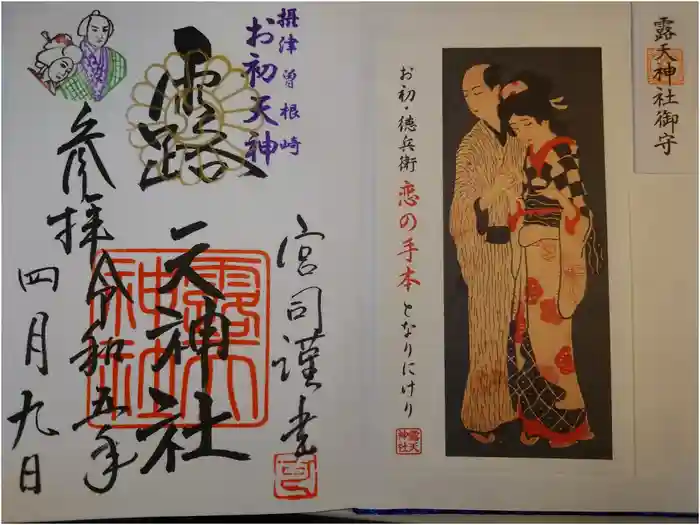 露天神社御守
お初・徳兵衛 恋の手本 となりにけり
露天
神社
摂津 曽根崎
お初天神
露
天神社
露天
神社
宮司謹書
参拝 令和五年
四月九日